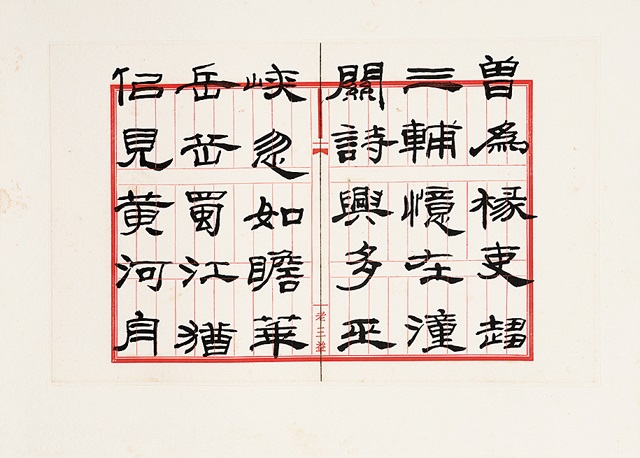 曾為掾吏趨
三輔憶在潼
關詩興多巫
峽忽如瞻華
岳岳蜀江猶
佀見黃河舟
老三